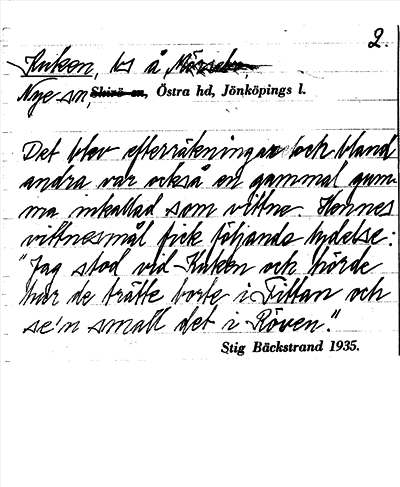 2.
Kuken, bs å Mörsebo,
Nye sn, Skirö sn, Östra hd, Jönköpings l.
Det blev efterräkningar och bland
andra var också en gammal gum-
ma inkallad som vittne. Hennes
vittnesmål fick följande lydelse:
"Jag stod vid Kuken och hörde
hur de trätte borte i Fittan och
se'n small det i Röven."
Stig Bäckstrand 1935.